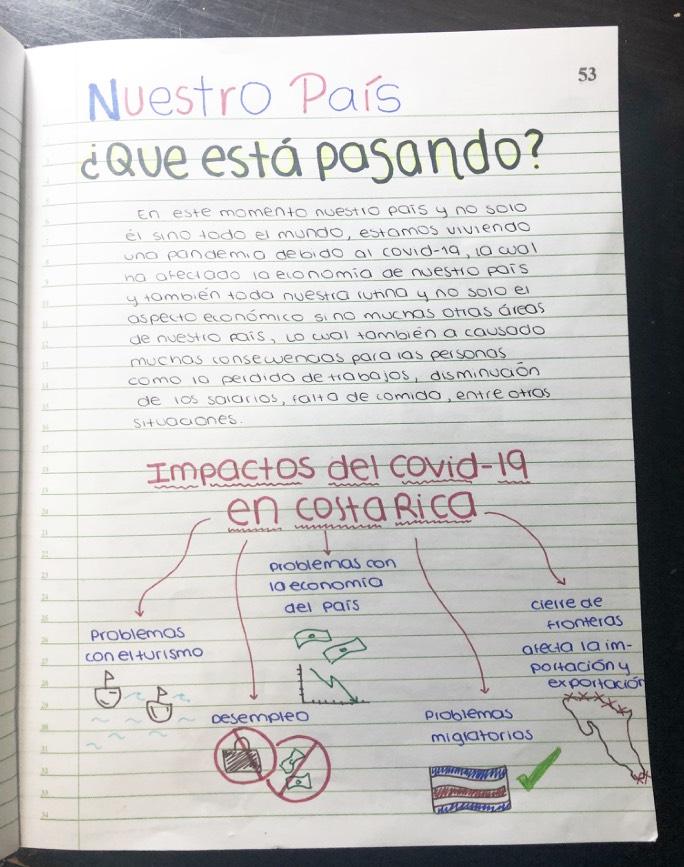 53
Nuestro País
¿Que está pasando?
En este momento nuestro país y no solo
él sino todo el mundo, estamos viviendo
una pandemia debido al covid-19, la cual
ha afectado la economía de nuestro país
y también toda nuestra rutina y no solo el
aspecto económico sino muchas otras áreas
de nuestro país, Lo cual también a causado
muchas consecuencias para las personas
como la perdida de trabajos, disminución
de los salarios, falta de comida, entre otras
situaciones.
Impactos del covid-19
en Costa Rica
Problemas con
la economía
del país
Problemas
con el turismo
cierre de
fronteras
afecta la im-
portación y
exportación
Desempleo
Problemas
migratorios